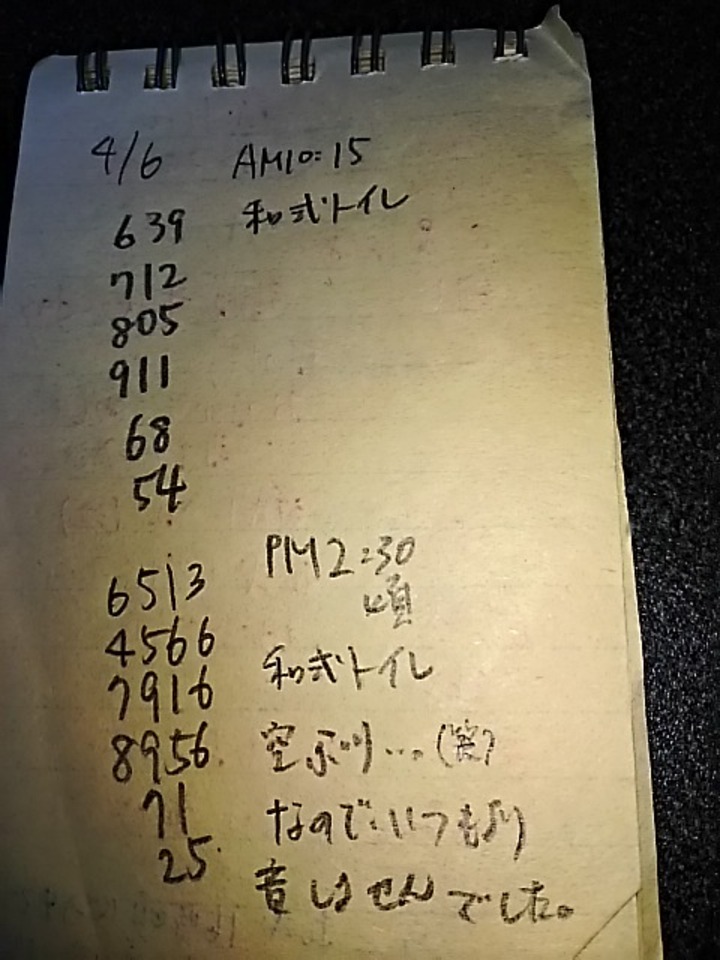 4/6 AM10:15
639 和式トイレ
712
805
911
68
54
PM2:30
頃
6513
4566
7916 和式トイレ
8956 空ぶり…(笑)
71 なので、いつもより
25 音しませんでした。